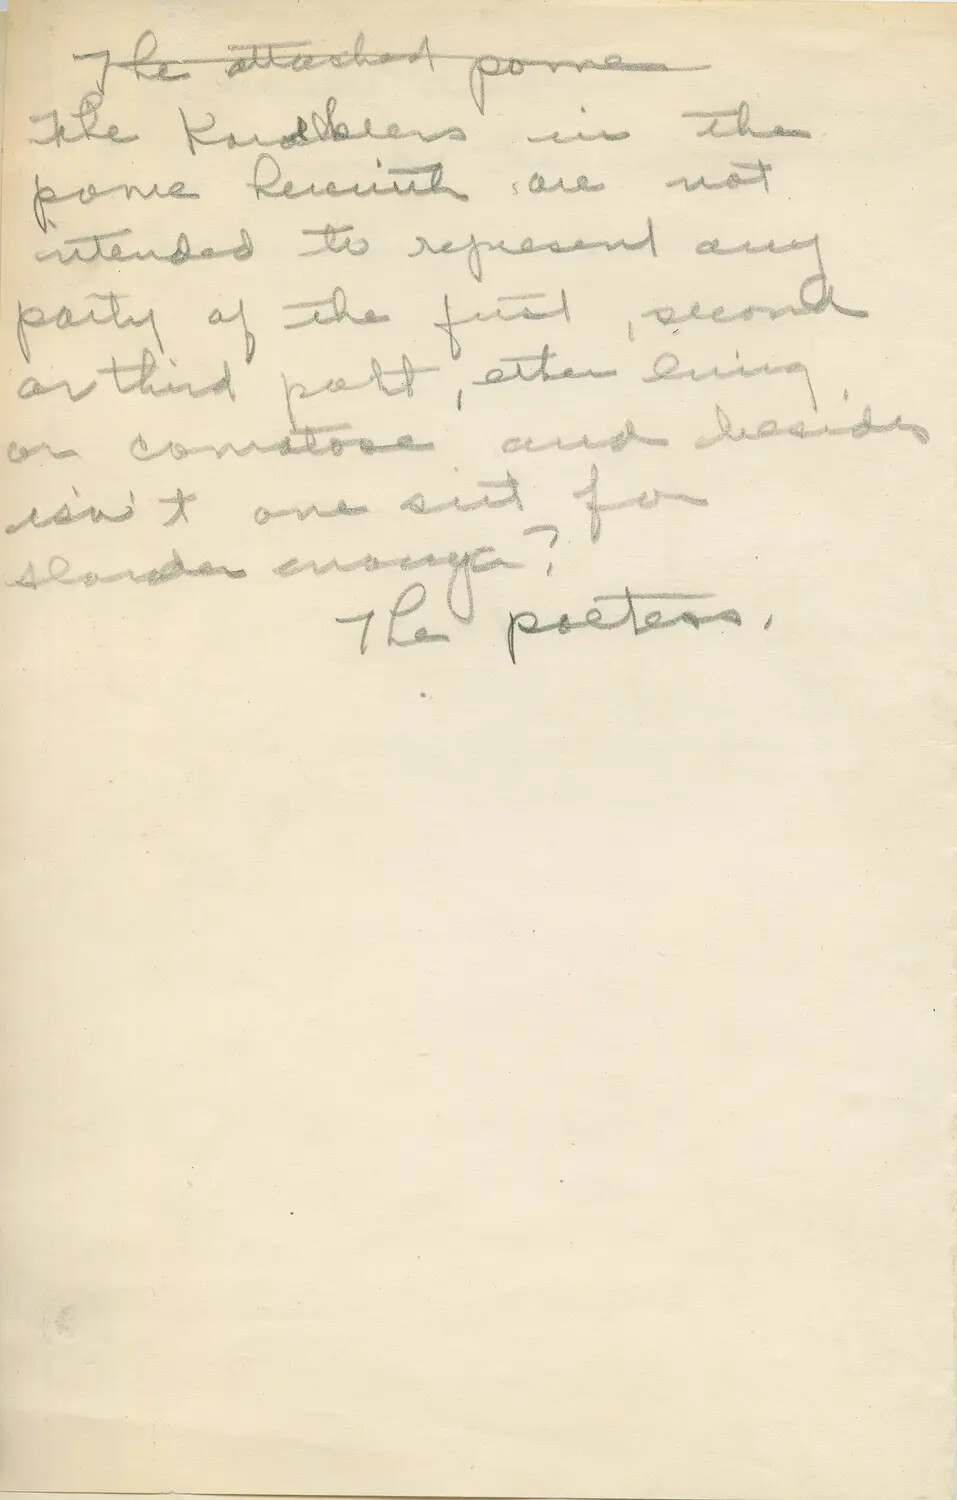 The attached pome
The in the
pome herewith are not
intended to represent any
party of the first, second
or third part, either living
or comatose and besides
isn't one suit for
slander enough?
The poetess.